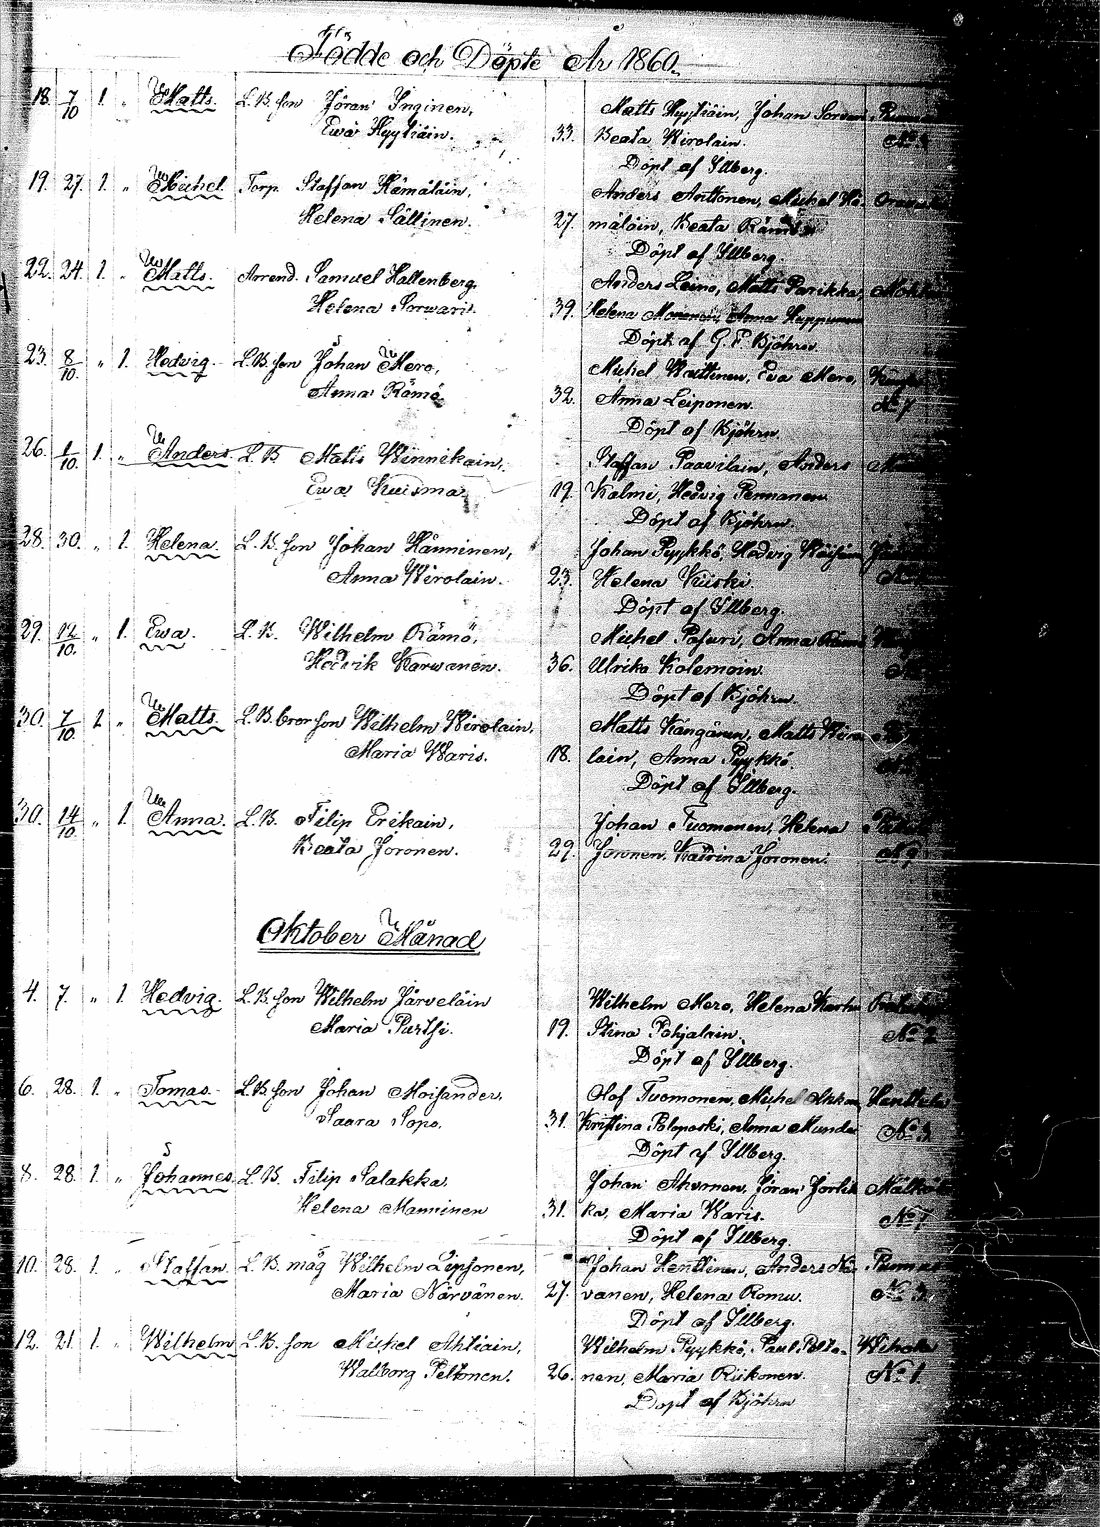 Födde och Döpte År 1860.
18. 7/10 1. „ Matts. L.B. son Jöran Inginen, Matts Hyytiäin, Johan Sorvan
Ewa Hyytiäin. 33. Beata Wirolain. No
Döpt af Illberg.
19. 27. 1. „ Michel Torp. Staffan Hämäläin, Anders Anttonen, Michel Hä-
Helena Sällinen. 27. mäläin, Beata Rämö
Döpt af Illberg.
22. 24. 1. „ Matts. Arrend. Samuel Hallenberg, Anders Leino, Matts Parikka,
Helena Sorwari. 39. Helena Mononen, Anna Huppunen
Döpt af G. F. Bjöhrn
23. 8/10. „ 1. Hedvig. L.B. son Johan Mero, Michel Wattinen, Eva Mero,
Anna Rämö 32. Anna Leiponen. No 7
Döpt af Bjöhrn
26. 1/10. 1. „ Anders L.B. Matts Winnikain, Staffan Paavilain, Anders
Ewa Kuisma 19. Kalmi, Hedvig Pennanen
Döpt af Bjöhrn.
28. 30. „ 1. Helena. L.B. son Johan Hänninen, Johan Pyykkö, Hedvig
Anna Wirolain. 23. Helena Kiiski.
Döpt af Illberg.
29. 12/10. „ 1. Ewa. L.B. Wilhelm Rämö, Michel Pasuri, Anna Rämö
Hedvik Karwanen. 36. Ulrika Kolemoin.
Döpt af Bjöhrn.
30. 7/10 1. „ Matts. L.B. bror son Wilhelm Wirolain, Matts Kängänen, Matts Wiro
Maria Waris. 18. lain, Anna Pyykkö.
Döpt af Illberg.
30. 14/10. „ 1. Anna. L.B. Filip Erikain, Johan Tuomonen, Helena
Beata Joronen. 29. Joronen, Katrina Joronen. No 9
Oktober Månad
4. 7. „ 1. Hedvig. L.B. son Wilhelm Järveläin Wilhelm Mero, Helena
Maria Purtsi. 19. Stina Pohjalain. No 2
Döpt af Illberg.
6. 28. 1. „ Tomas. L.B. son Johan Moisander, Olof Tuomonen, Michel Akkan,
Saara Sopo. 31. Kristina Poloposki, Anna Munda No 3.
Döpt af Illberg.
8. 28. 1. „ Johannes. L.B. Filip Salakka. Johan Ahvonen, Jöran Jortik
Helena Manninen 31. ka, Maria Waris. No 1
Döpt af Illberg.
10. 28. 1. „ Staffan. L.B. måg Wilhelm Lipsonen, Johan Henttinen, Anders Nä-
Maria Närvänen. 27. vänen, Helena Romu. No 3.
Döpt af Illberg.
12. 21. 1. „ Wilhelm L.B. son Michel Ahtiain, Wilhelm Pyykkö, Paul Pelto-
Walborg Peltonen. 26. nen, Maria Riikonen. No 1.
Döpt af Bjöhrn